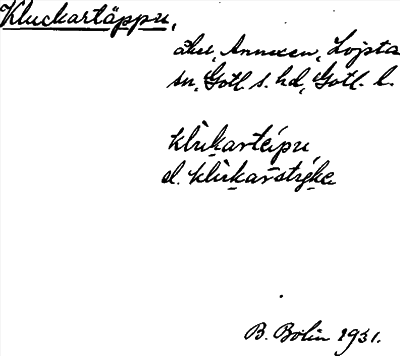 Kluckartäppu,
åker, Annexen, Lojsta
sn, Gotl. s. hd, Gotl. l.
klukartäpu
el. klukarstyke
B. Bolin 1931.